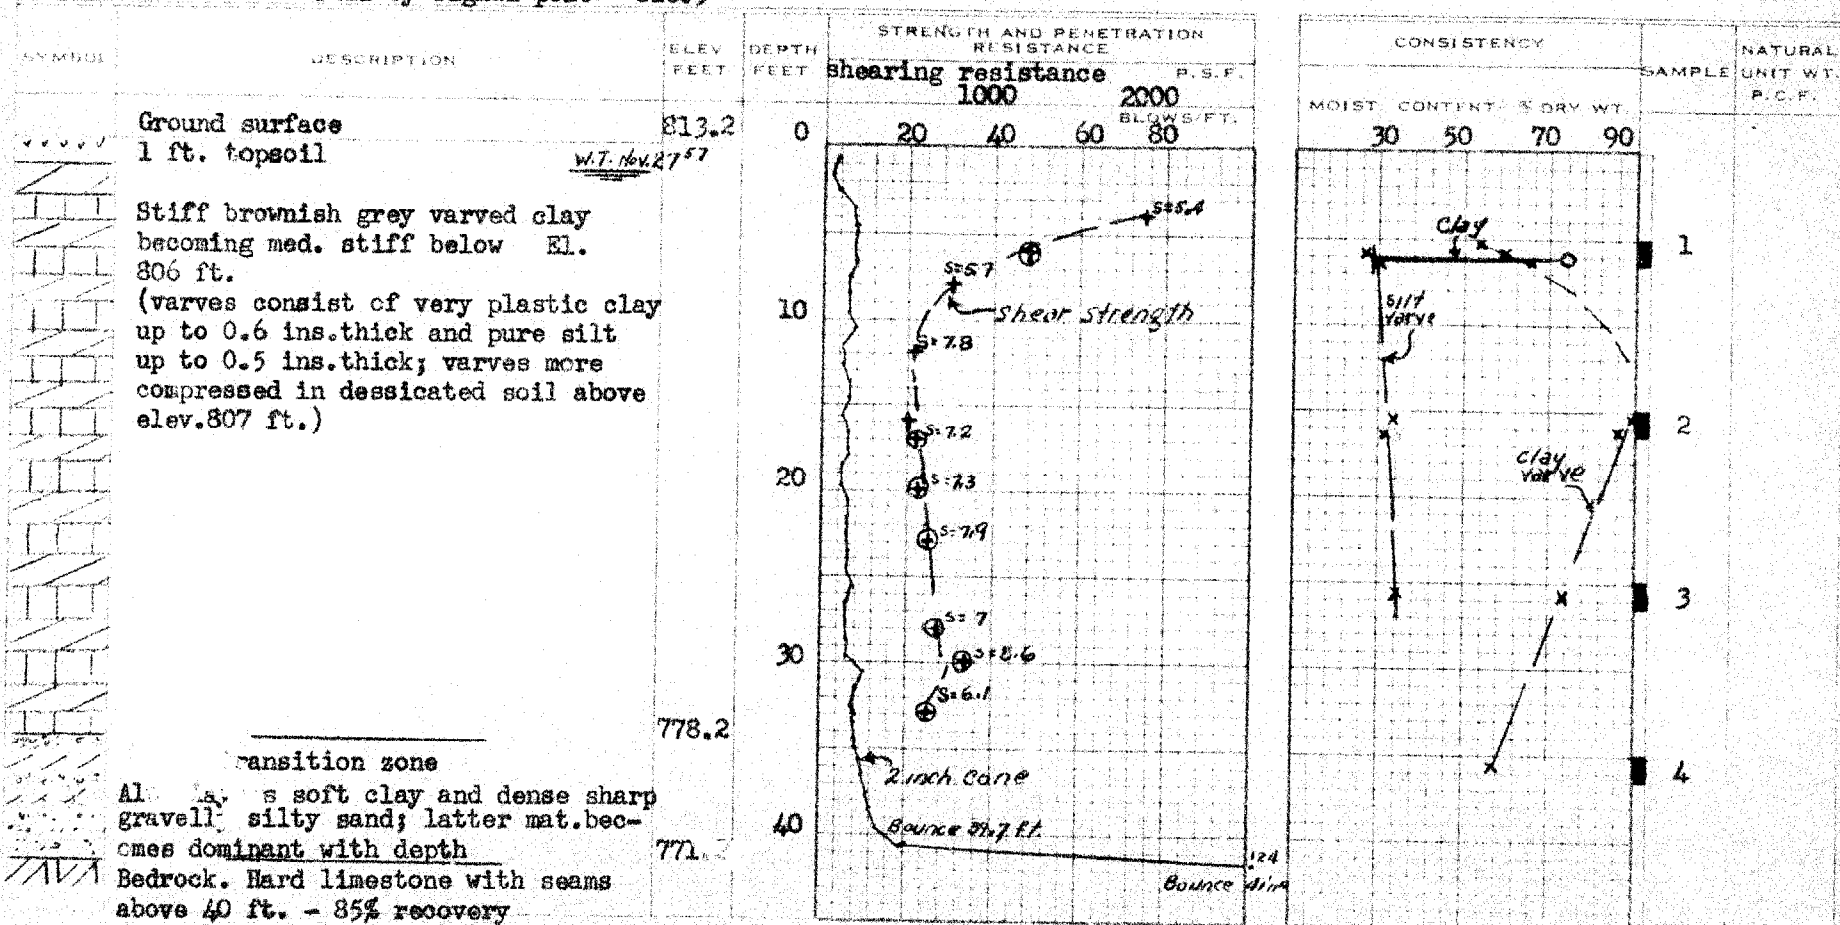 SYMBOL
DESCRIPTION
ELEV
FEET
DEPTH
FEET
STRENGTH AND PENETRATION
RESISTANCE
shearing resistance P.S.F.
1000 2000
BLOWS/FT.
20 40 60 80
CONSISTENCY
MOIST. CONTENT % DRY WT.
30 50 70 90
SAMPLE
NATURAL
UNIT WT.
P.C.F.
Ground surface 813.2 0
1 ft. topsoil
W.T. Nov. 27 57
Stiff brownish grey varved clay
becoming med. stiff below El.
806 ft.
(varves consist of very plastic clay
up to 0.6 ins.thick and pure silt
up to 0.5 ins.thick; varves more
compressed in dessicated soil above
elev.807 ft.)
778.2
ransition zone
s soft clay and dense sharp
silty sand; latter mat.bec-
omes dominant with depth 771.
Bedrock. Hard limestone with seams
above 40 ft. - 85% recovery
10
20
30
40
S=5.4
S=5.7
shear strength
S=7.8
S=7.2
S=7.3
S=7.9
S=7
S=8.6
S=6.1
2 inch cone
Bounce 39.7 ft.
124
Bounce
Clay
silt
varve
clay
varve
1
2
3
4